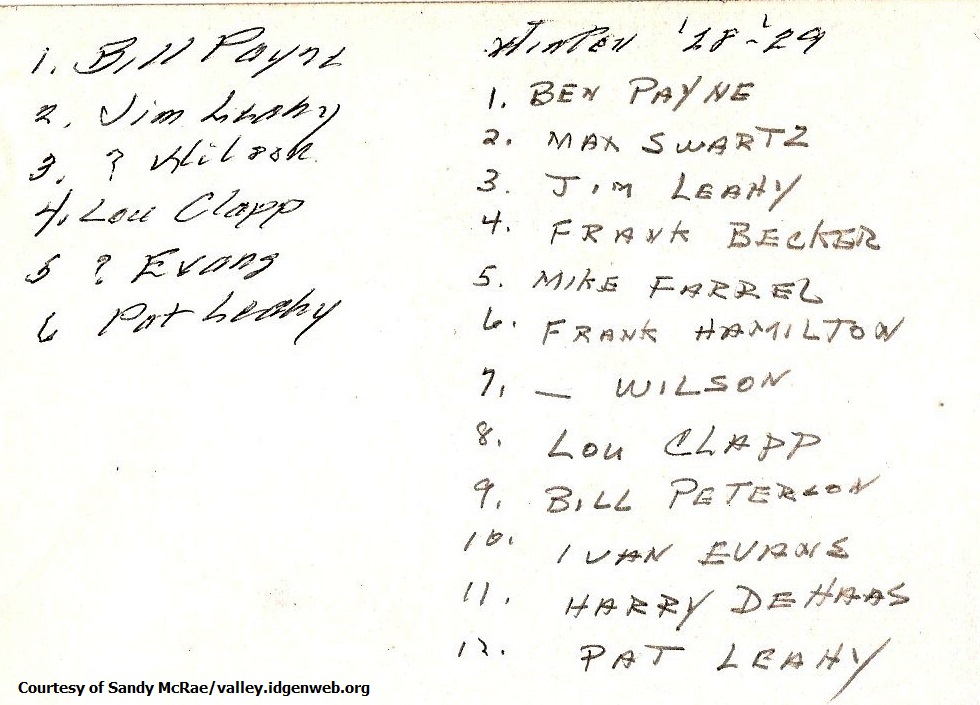 1. Bill Payne
2. Jim Leahy
3. ? Wilson
4. Lou Clapp
5 ? Evans
6 Pat Leahy
Winter '28-'29
1. BEN PAYNE
2. MAX SWARTZ
3. JIM LEAHY
4. FRANK BECKER
5. MIKE FARREL
6. FRANK HAMILTON
7. — WILSON
8. LOU CLAPP
9. BILL PETERSON
10. IVAN EVANS
11. HARRY DEHAAS
12. PAT LEAHY
Courtesy of Sandy McRae/valley.idgenweb.org